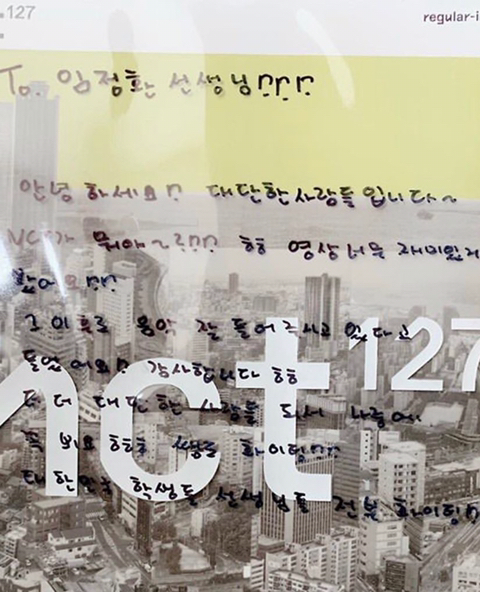 127
regular-i
To. 임정환 선생님!!!
안녕 하세요!! 대단한사람들 입니다~
NCT가 뭐야~ㄹ!!! ㅎㅎ 영상 너무 재미있게
봤어요!!!
그 이후로 음악 잘 들어주시고 있다고
들었어요!! 감사합니다 ㅎㅎ
더 더 대단한 사람들 되서 나중에
꼭 봬요 ㅎㅎㅎ 쌤들 화이팅!!!
대한민국 학생들 선생님들 전부 화이팅!!
nct 127